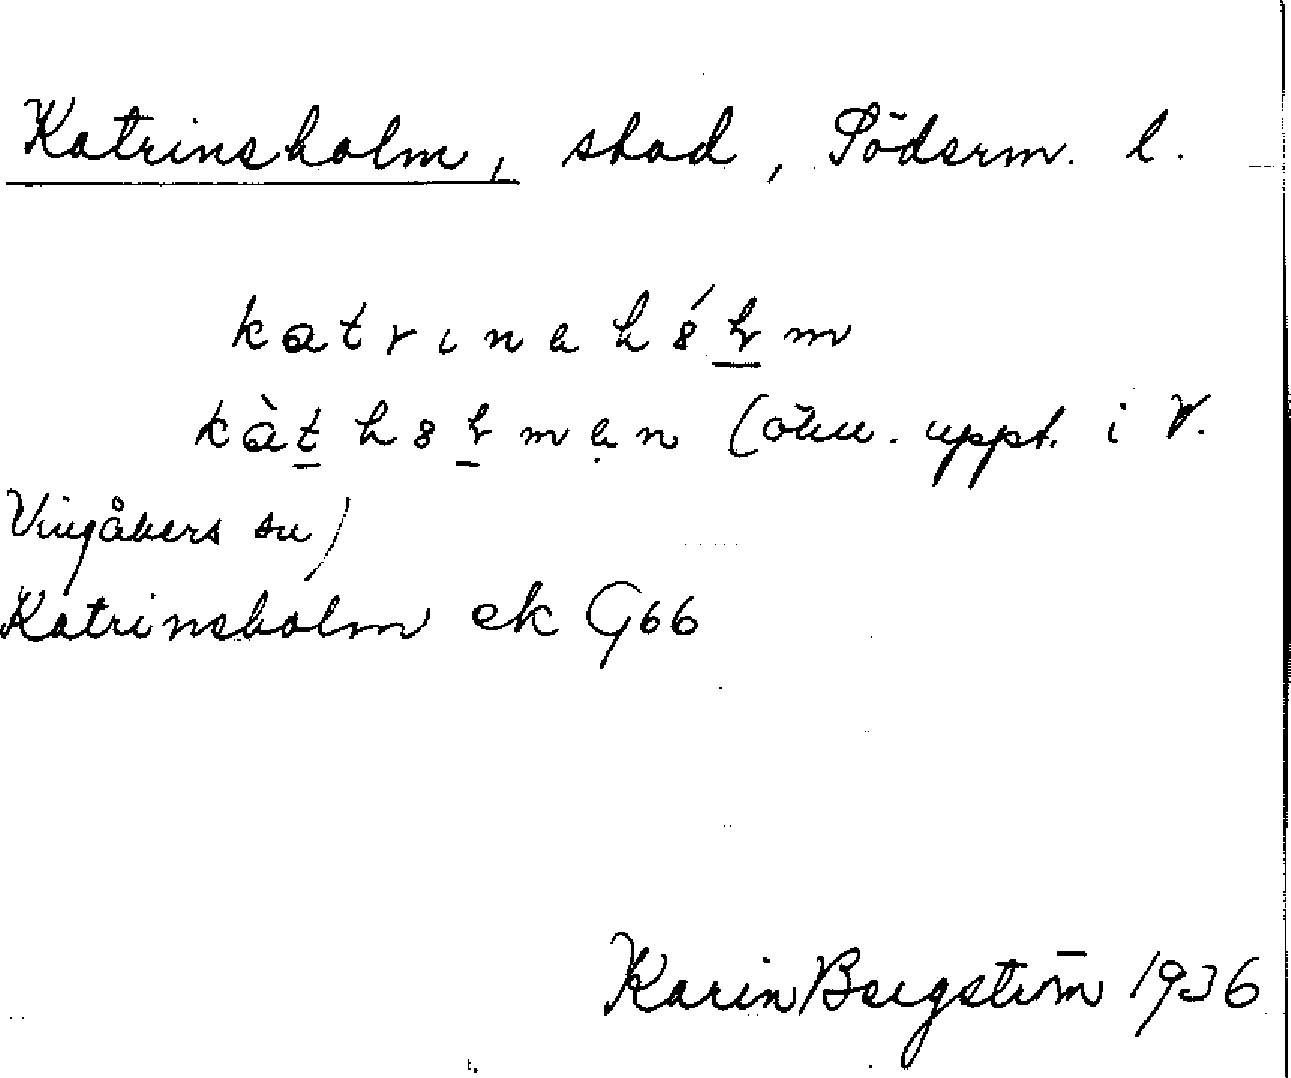 Katrineholm, stad, Söderm. l.
katrinahólm
kàthólmen (öknv. uppt. i V.
Vingåkers sn)
Katrineholm ek G66
Karin Bergström 1936